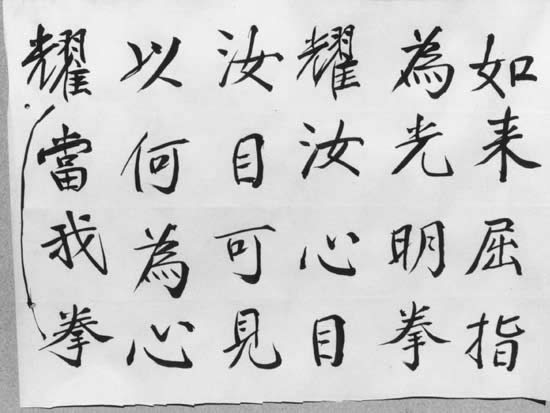 如来屈指
為光明拳
耀汝心目
汝目可見
以何為心
耀當我拳